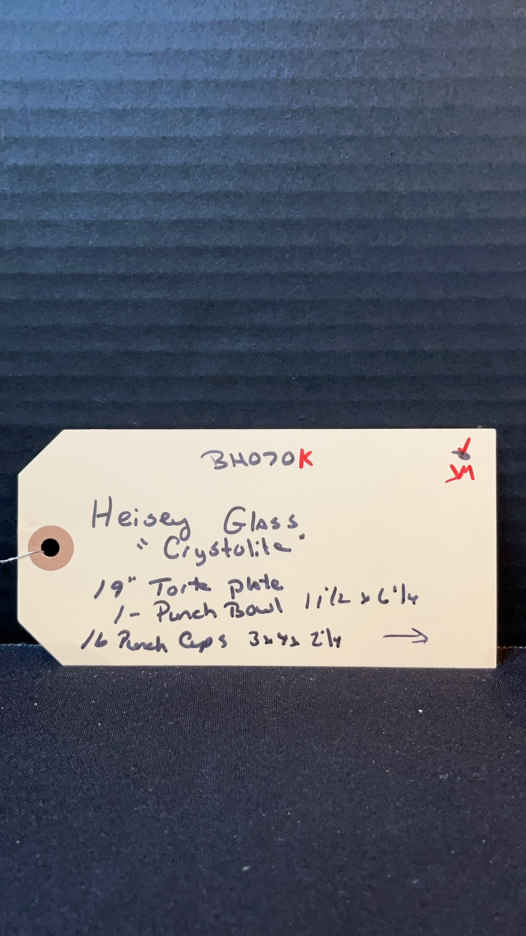 BH070K
Heisey Glass
"Crystolite"
19" Torte plate
1- Punch Bowl 11 1/2 x 6 1/4
16 Punch Cups 3x4x 2 1/4 →